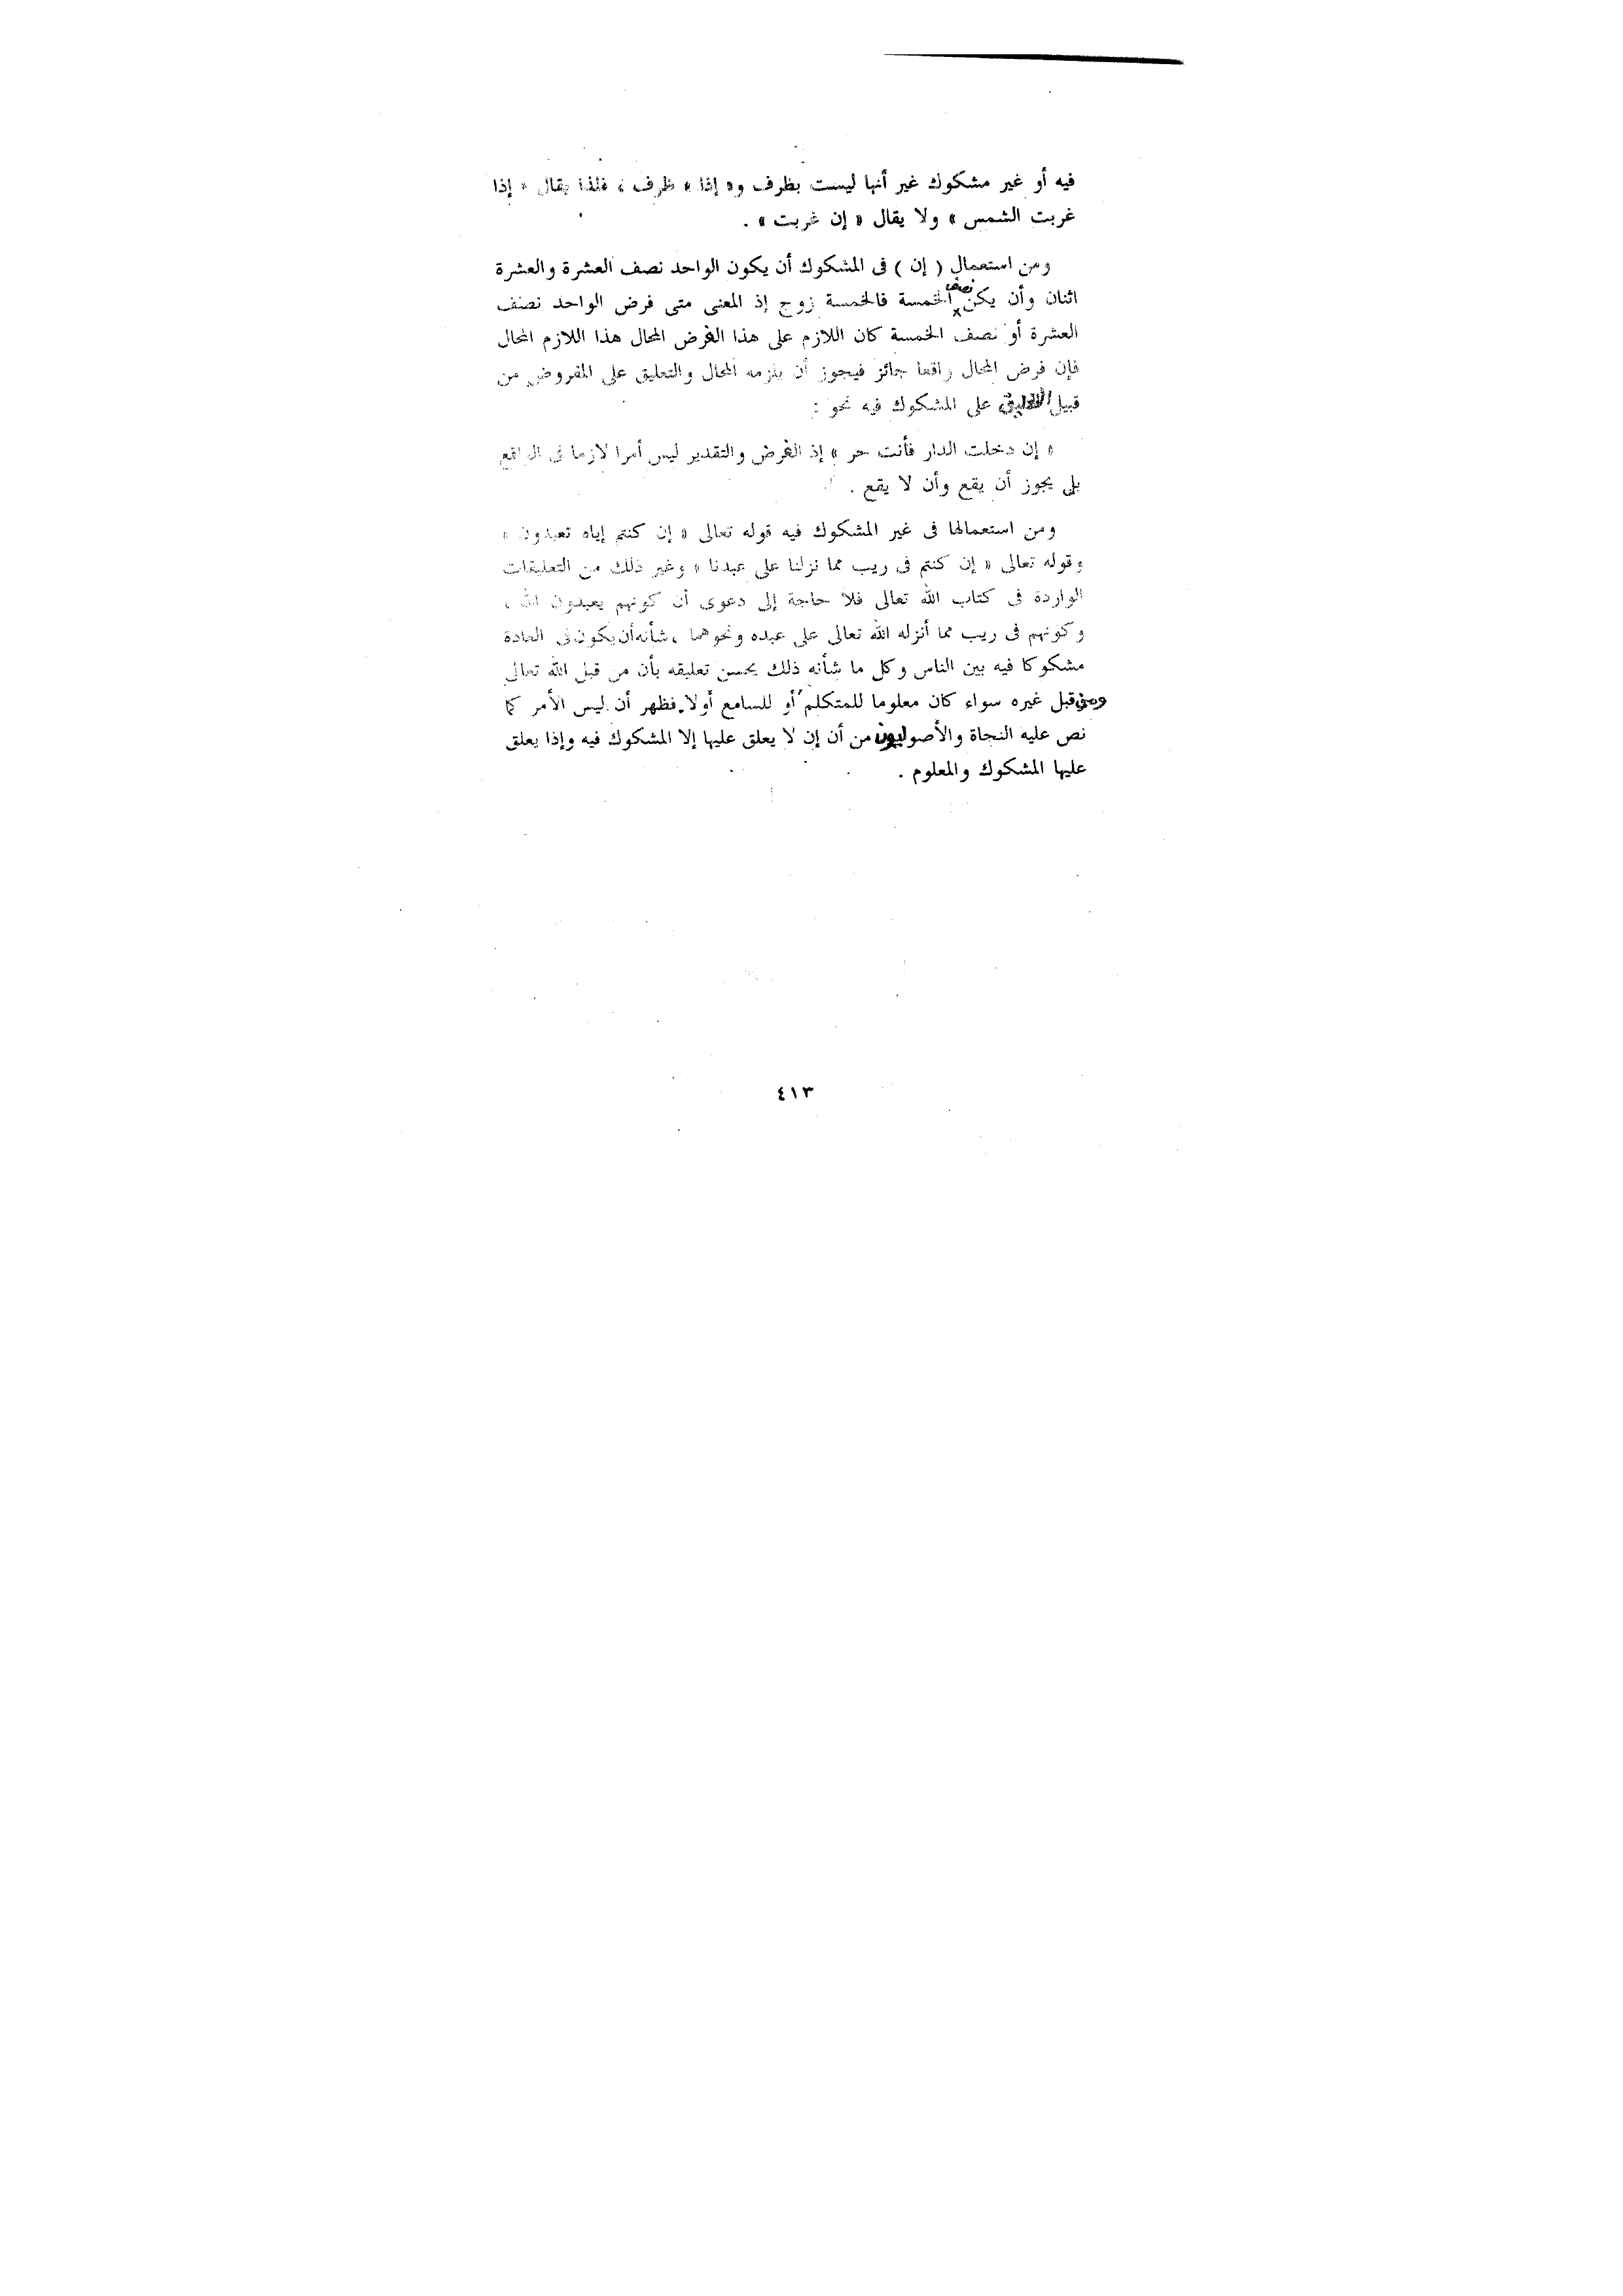 فيه أو غير مشكوك غير أنها ليست بظرف و« إذا » ظرف ، فلذا يقال « إذا
غربت الشمس » ولا يقال « إن غربت » .
ومن استعمال ( إن ) فى المشكوك أن يكون الواحد نصف العشرة والعشرة
اثنان وأن يكن نصف الخمسة فالخمسة زوج إذ المعنى متى فرض الواحد نصف
العشرة أو نصف الخمسة كان اللازم على هذا الفرض المحال هذا اللازم المحال
فإن فرض المحال واقعا جائز فيجوز أن يلزمه المحال والتعليق على المفروض من
قبيل التعليق على المشكوك فيه نحو :
« إن دخلت الدار فأنت حر » إذ الفرض والتقدير ليس أمرا لازما فى الواقع
بل يجوز أن يقع وأن لا يقع .
ومن استعمالها فى غير المشكوك فيه قوله تعالى « إن كنتم إياه تعبدون »
وقوله تعالى « إن كنتم فى ريب مما نزلنا على عبدنا » وغير ذلك من التعليقات
الواردة فى كتاب الله تعالى فلا حاجة إلى دعوى أن كونهم يعبدون الله ،
وكونهم فى ريب مما أنزله الله تعالى على عبده ونحوهما ، شأنه أن يكون فى العادة
مشكوكا فيه بين الناس وكل ما شأنه ذلك يحسن تعليقه بأن من قبل الله تعالى
ومن قبل غيره سواء كان معلوما للمتكلم أو للسامع أولا . فظهر أن ليس الأمر كما
نص عليه النجاة والأصوليون من أن إن لا يعلق عليها إلا المشكوك فيه وإذا يعلق
عليها المشكوك والمعلوم .
٤١٣